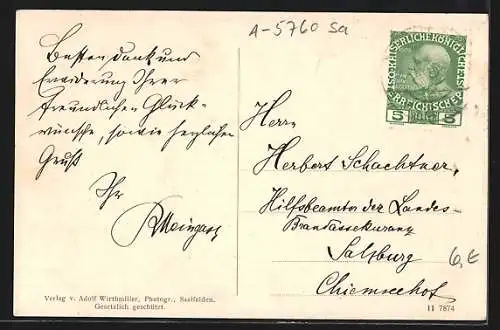 A-5760 Sa
Besten Dank und
Erwiderung Ihrer
freundlichen Glück-
wünsche, sowie herzlichen
Gruß
Ihr
Herrn
Herbert Schachtner,
Hilfsbeamter der Landes-
Brandassekuranz
Salzburg
Chiemseehof
6,€
5 5
Verlag v. Adolf Wirthmiller, Photogr., Saalfelden.
Gesetzlich geschützt.
11 7874